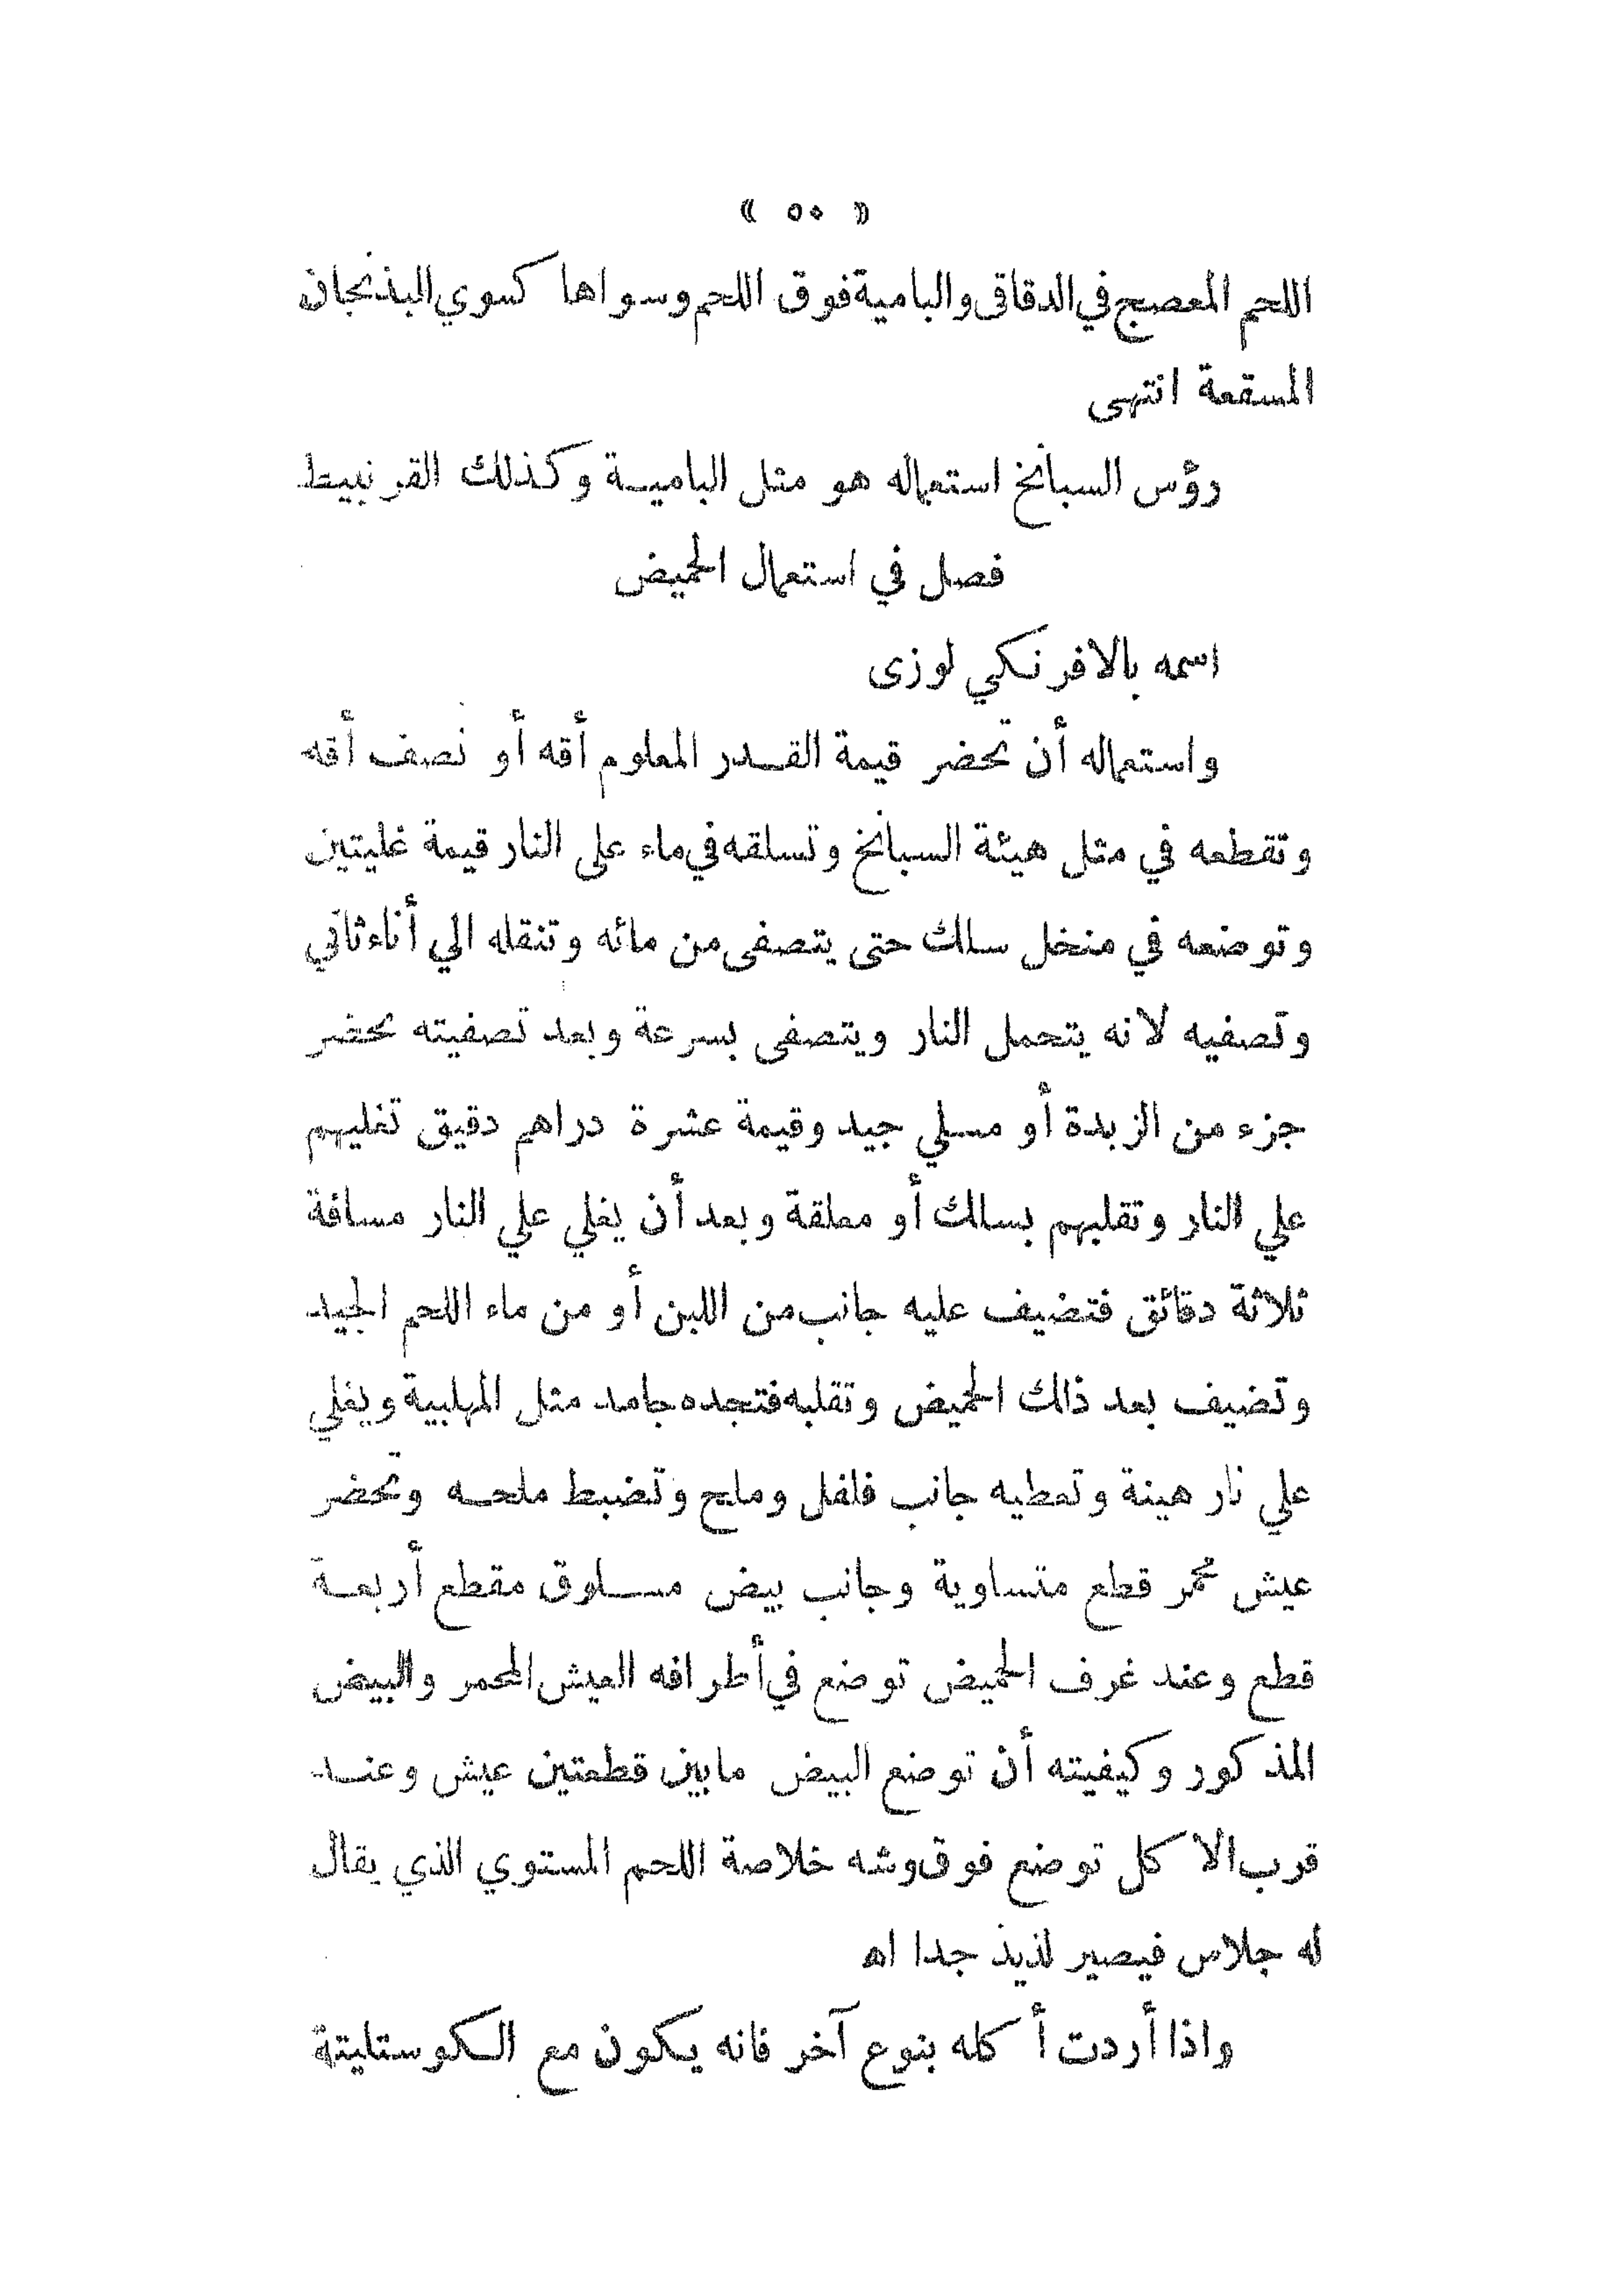 « ٥٠ »
اللحم المعصج في الدقاقى والبامية فوق اللحم وسواها كسوي البذنجان
المسقعة انتهى
رؤس السبانخ استعماله هو مثل البامية وكذلك القرنبيط
فصل في استعمال الحميض
اسمه بالافرنكي لوزى
واستعماله أن تحضر قيمة القدر المعلوم أقه أو نصف أقه
وتقطعه في مثل هيئة السبانخ وتسلقه في ماء على النار قيمة غليتين
وتوضعه في منخل سلك حتى يتصفى من مائه وتنقله الي أناء ثاني
وتصفيه لانه يتحمل النار ويتصفى بسرعة وبعد تصفيته تحضر
جزء من الزبدة أو مسلي جيد وقيمة عشرة دراهم دقيق تغليهم
علي النار وتقلبهم بسلك أو معلقة وبعد أن يغلي علي النار مسافة
ثلاثة دقائق فتضيف عليه جانب من اللبن أو من ماء اللحم الجيد
وتضيف بعد ذلك الحميض وتقلبه فتجده جامد مثل المهلبية ويغلي
علي نار هينة وتعطيه جانب فلفل وملح وتضبط ملحه وتحضر
عيش محمر قطع متساوية وجانب بيض مسلوق مقطع أربعة
قطع وعند غرف الحميض توضع في أطرافه العيش المحمر والبيض
المذكور وكيفيته أن توضع البيض مابين قطعتين عيش وعند
قرب الاكل توضع فوق وشه خلاصة اللحم المستوي الذي يقال
له جلاس فيصير لذيذ جدا اه
واذا أردت أكله بنوع آخر فانه يكون مع الكوستليتة